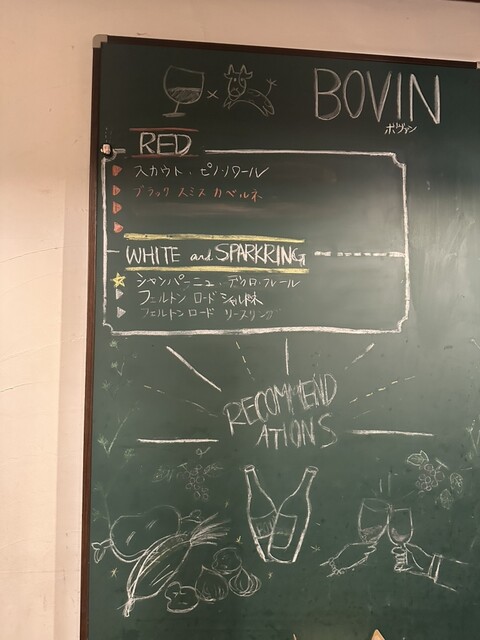 BOVIN
ボヴァン
RED
スカウト・ピノノワール
ブラックスミス カベルネ
WHITE and SPARKRING
シャンパーニュ・ドゥラ・フレール
フェルトン ロード シャルドネ
フェルトンロード リースリング
RECOMMEND
ATIONS